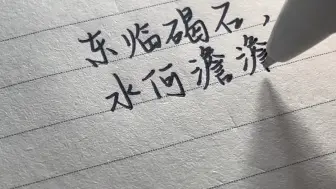 东临碣石，
水何澹澹